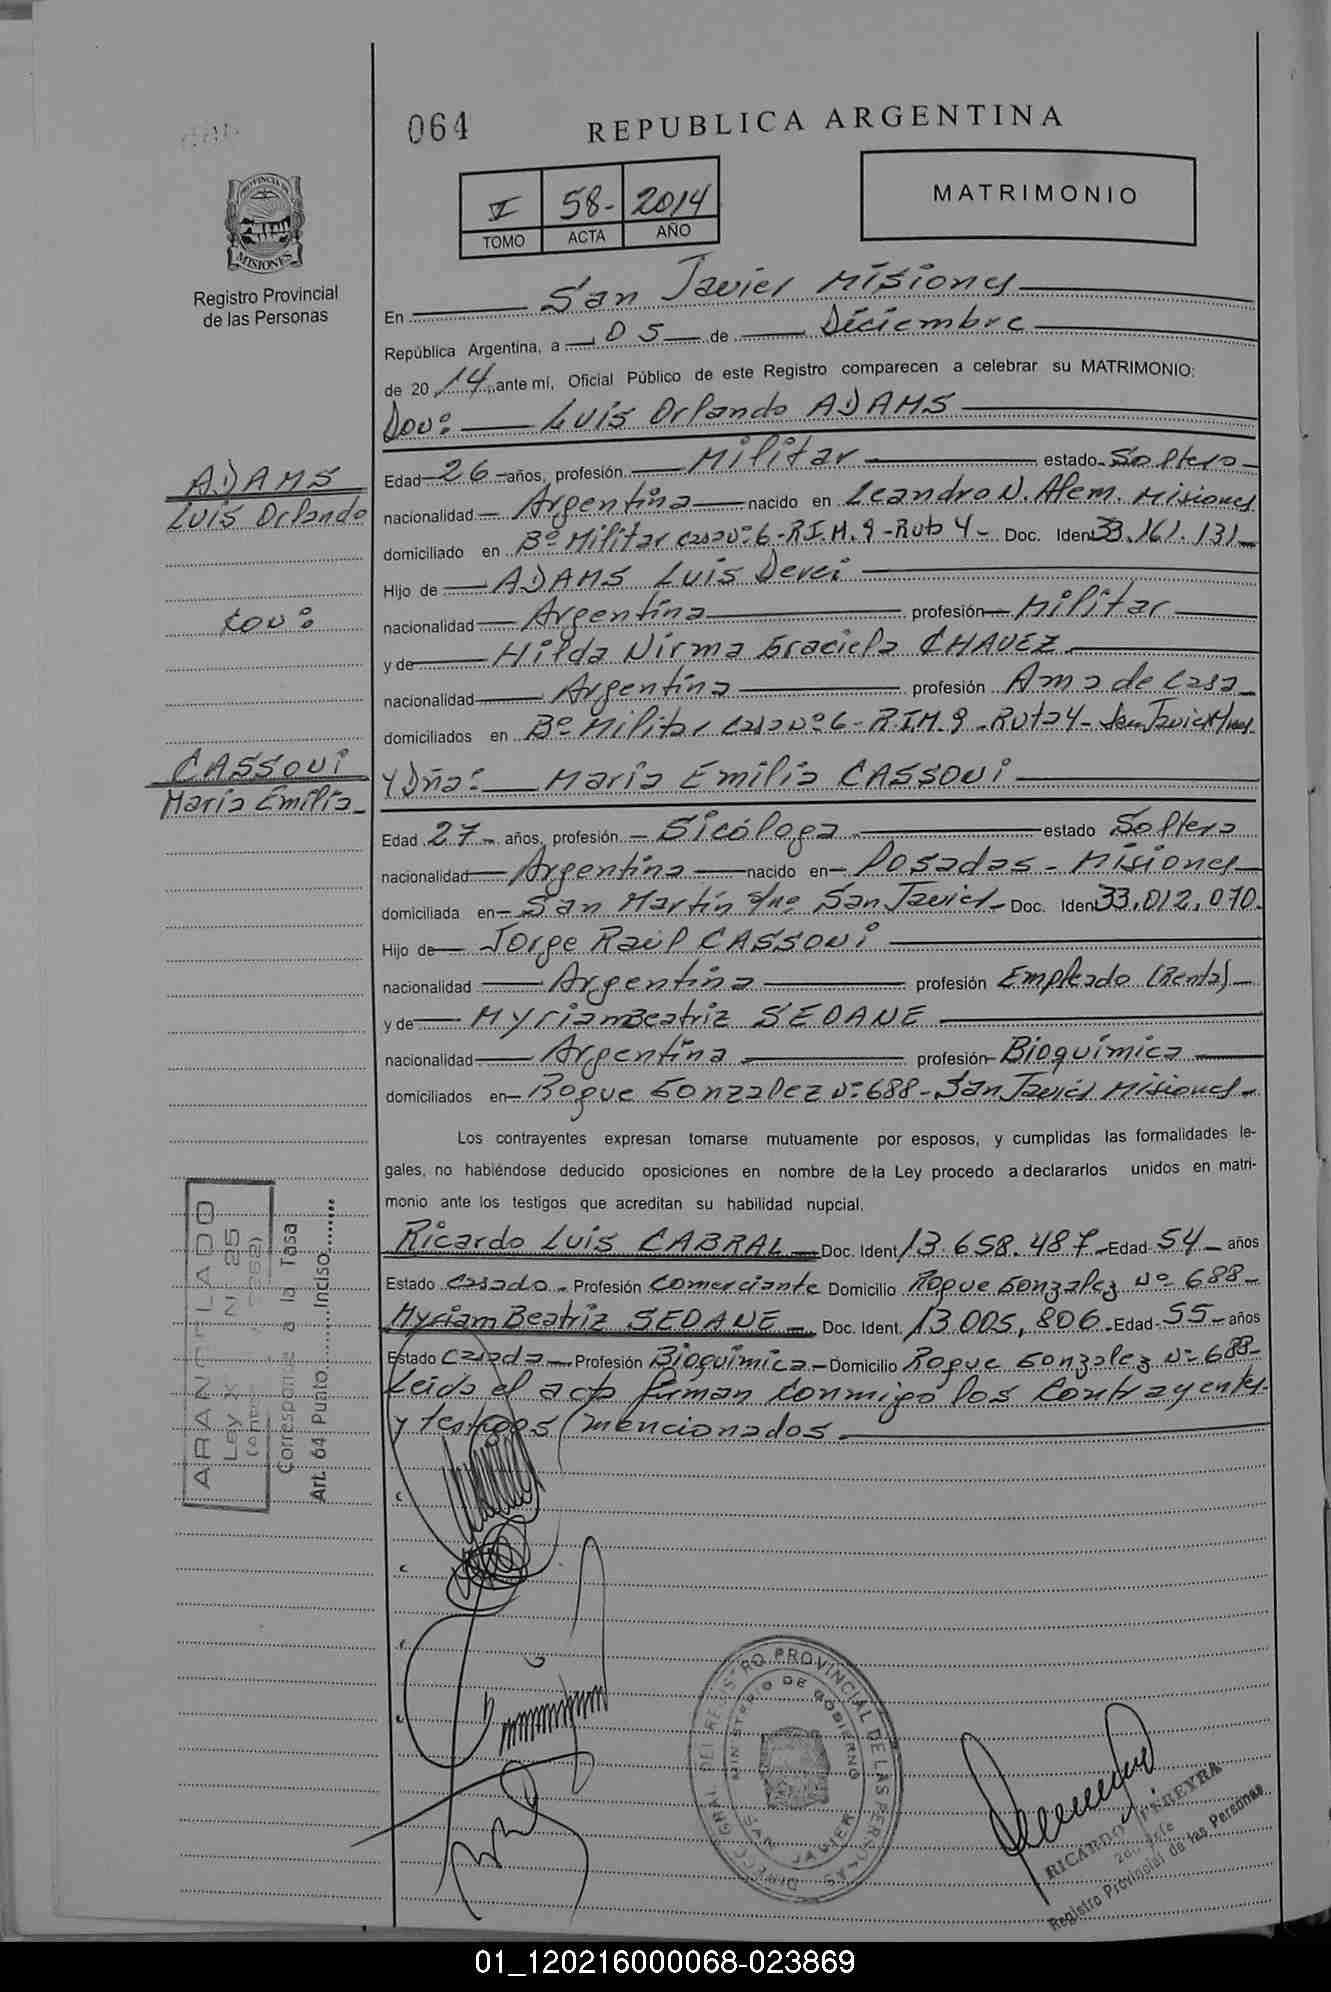 064
REPUBLICA ARGENTINA
PROVINCIA DE
MISIONES
Registro Provincial
de las Personas
I 58- 2014
TOMO ACTA AÑO
MATRIMONIO
En San Javier Misiones
República Argentina, a 05 de Diciembre
de 20 14 ante mí, Oficial Público de este Registro comparecen a celebrar su MATRIMONIO:
Don: Luis Orlando ADAMS
ADAMS
Luis Orlando
con:
CASSONI
María Emilia
Edad 26 años, profesión Militar estado Soltero
nacionalidad Argentina nacido en Leandro N. Alem. Misiones
domiciliado en Bº Militar casa Nº 6-R.I.M.9-Ruta 4- Doc. Iden 33.161.131
Hijo de ADAMS Luis Derci
nacionalidad Argentina profesión Militar
y de Hilda Nirma Graciela CHAVEZ
nacionalidad Argentina profesión Ama de Casa
domiciliados en Bº Militar casa Nº 6-R.I.M.9-Ruta 4- San Javier Mnes
Y Dña: María Emilia CASSONI
Edad 27 años, profesión Sicóloga estado Soltera
nacionalidad Argentina nacido en Posadas-Misiones
domiciliada en San Martín s/nº San Javier Doc. Iden 33.012.070.
Hijo de Jorge Raúl CASSONI
nacionalidad Argentina profesión Empleado (Renta)
y de Myriam Beatriz SEDANE
nacionalidad Argentina profesión Bioquímica
domiciliados en Roque Gonzalez Nº 688-San Javier Misiones
Los contrayentes expresan tomarse mutuamente por esposos, y cumplidas las formalidades le-
gales, no habiéndose deducido oposiciones en nombre de la Ley procedo a declararlos unidos en matri-
monio ante los testigos que acreditan su habilidad nupcial.
Ricardo Luis CABRAL Doc. Ident. 13.658.487 Edad 54 años
Estado Casado Profesión Comerciante Domicilio Roque Gonzalez Nº 688
Myriam Beatriz SEDANE Doc. Ident. 13.005.806 Edad 55 años
Estado Casada Profesión Bioquímica Domicilio Roque Gonzalez Nº 688
Leída el acta firman conmigo los contrayentes
y testigos mencionados.
ARANCELADO
Ley X N 25
Corresponde a la Tasa
Art. 64 Punto Inciso
DIRECC. GRAL. DEL REGISTRO PROVINCIAL DE LAS PERSONAS
MINISTERIO DE GOBIERNO
SAN JAVIER
RICARDO PEREYRA
2do Jefe
Registro Provincial de las Personas
01_120216000068-023869